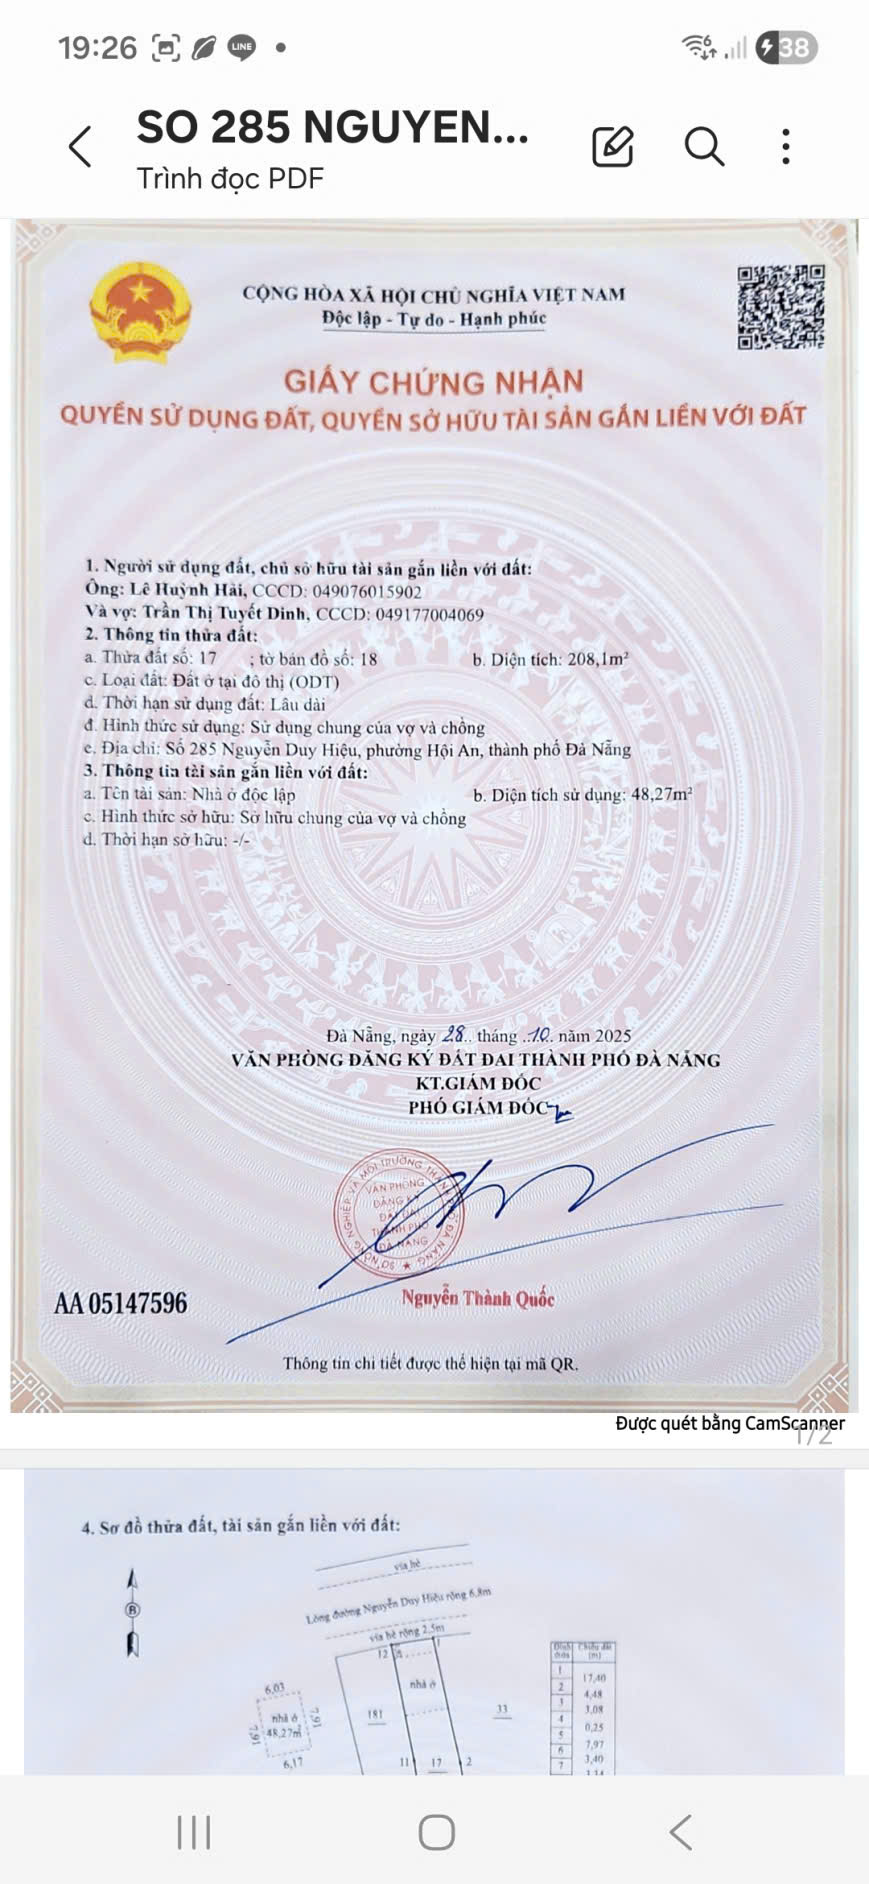 19:26 LINE 6 38
SO 285 NGUYEN...
Trình đọc PDF
CỘNG HÒA XÃ HỘI CHỦ NGHĨA VIỆT NAM
Độc lập - Tự do - Hạnh phúc
GIẤY CHỨNG NHẬN
QUYỀN SỬ DỤNG ĐẤT, QUYỀN SỞ HỮU TÀI SẢN GẮN LIỀN VỚI ĐẤT
1. Người sử dụng đất, chủ sở hữu tài sản gắn liền với đất:
Ông: Lê Huỳnh Hải, CCCD: 049076015902
Và vợ: Trần Thị Tuyết Dinh, CCCD: 049177004069
2. Thông tin thửa đất:
a. Thửa đất số: 17 ; tờ bản đồ số: 18 b. Diện tích: 208,1m²
c. Loại đất: Đất ở tại đô thị (ODT)
d. Thời hạn sử dụng đất: Lâu dài
đ. Hình thức sử dụng: Sử dụng chung của vợ và chồng
e. Địa chỉ: Số 285 Nguyễn Duy Hiệu, phường Hội An, thành phố Đà Nẵng
3. Thông tin tài sản gắn liền với đất:
a. Tên tài sản: Nhà ở độc lập b. Diện tích sử dụng: 48,27m²
c. Hình thức sở hữu: Sở hữu chung của vợ và chồng
d. Thời hạn sở hữu: -/-
Đà Nẵng, ngày 28.. tháng ..10.. năm 2025
VĂN PHÒNG ĐĂNG KÝ ĐẤT ĐAI THÀNH PHỐ ĐÀ NẴNG
KT.GIÁM ĐỐC
PHÓ GIÁM ĐỐC
VĂN PHÒNG
ĐĂNG KÝ
ĐẤT ĐAI
THÀNH PHỐ
ĐÀ NẴNG
Nguyễn Thành Quốc
AA 05147596
Thông tin chi tiết được thể hiện tại mã QR.
Được quét bằng CamScanner
1/2
4. Sơ đồ thửa đất, tài sản gắn liền với đất:
vỉa hè
B
Lòng đường Nguyễn Duy Hiệu rộng 6,8m
vỉa hè rộng 2,5m
12 1
nhà ở
6,03
nhà ở
48,27m²
7,91 7,91
6,17
181
33
11 17 2
Đỉnh thửa Chiều dài (m)
1
17,40
2
4,48
3
3,08
4
0,25
5
7,97
6
3,40
7